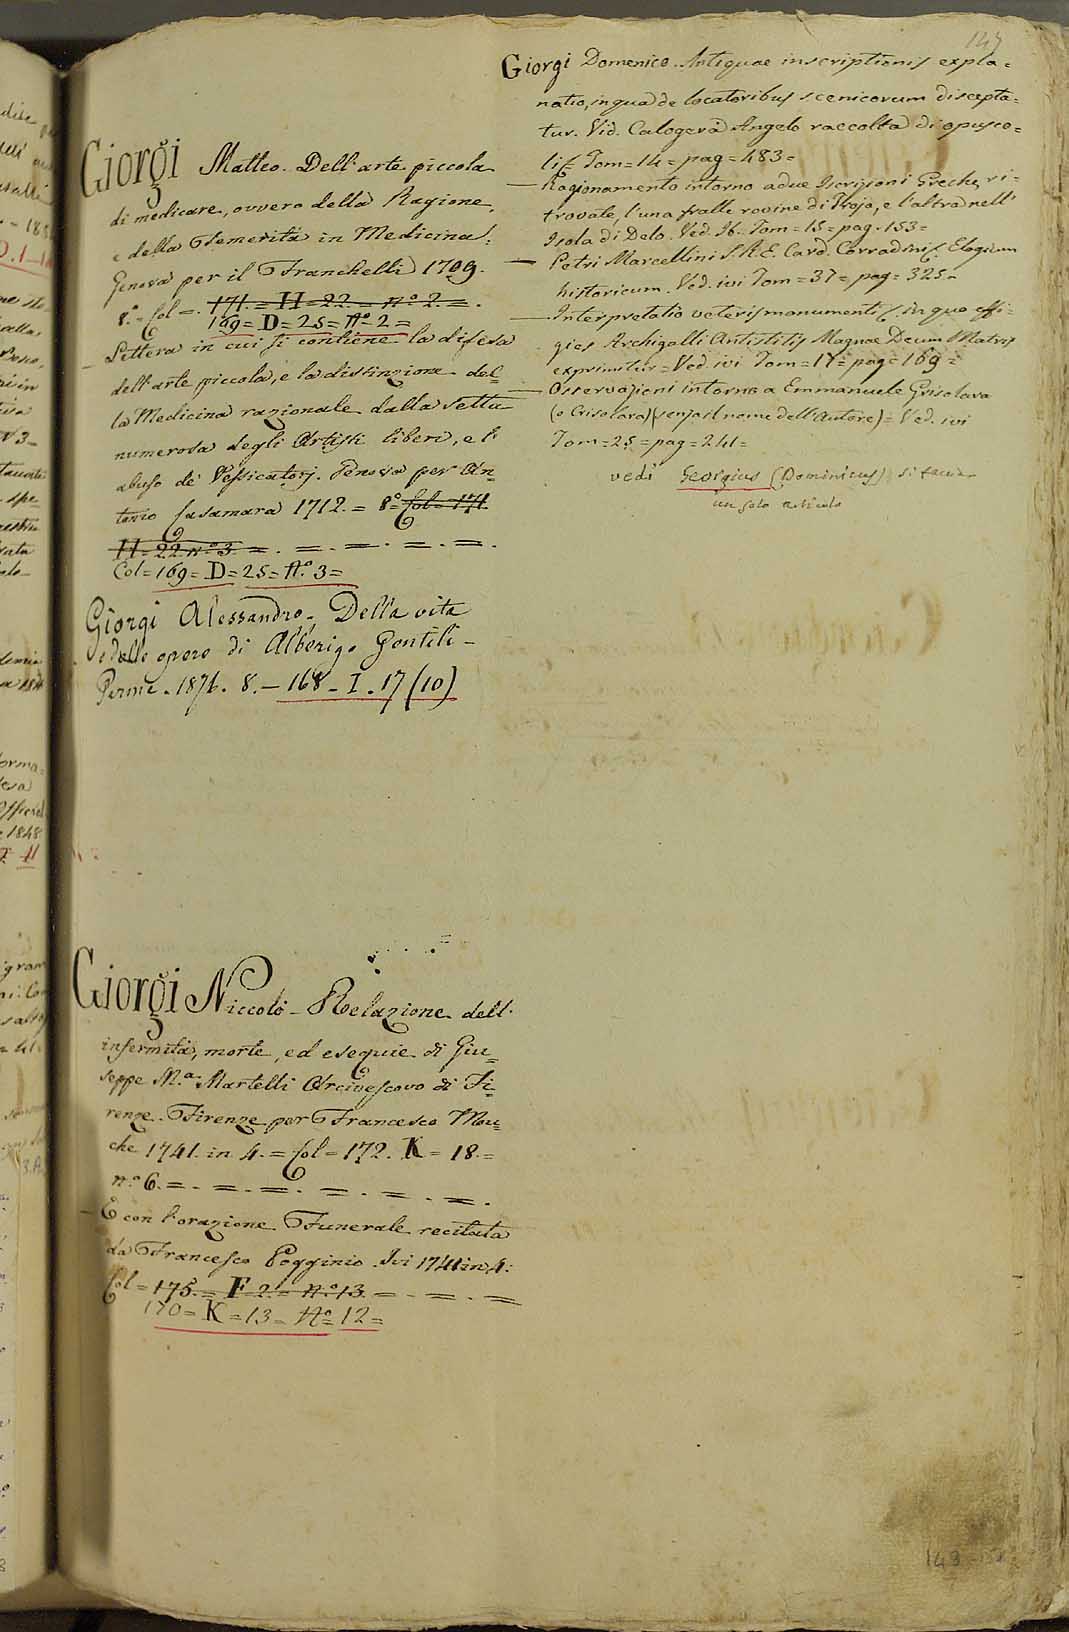 147
Giorgi Matteo. Dell'arte piccola
di medicare, ovvero della Ragione,
e della Temerità in Medicina.
Genova per il Franchelli 1709.
8.° Col =. 171. = H = 22. = n.° 2. =.
169 = D = 25 = N.° 2 =
– Lettera in cui si contiene la difesa
dell'arte piccola, e la distinzione del=
la Medicina razionale dalla setta
numerosa degli Artisti liberi, e l'
abuso de' Vessicatorj. Genova per An=
tonio Casamara 1712. = 8.° Col = 171.
H = 22. n.° 3. =. =. =. =. =.
Col = 169 = D = 25 = N.° 3 =
Giorgi Alessandro. Della vita
e delle opere di Alberigo Gentili –
Fermo. 1876. 8. – 168 – I. 17 (10)
Giorgi Niccolò – Relazione dell'
infermità, morte, ed esequie di Giu=
seppe M.a Martelli Arcivescovo di Fi=
renze. Firenze per Francesco Mou=
che 1741. in 4. = Col = 172. K = 18. =
n.° 6. =. =. =. =. =. =.
– E con l'orazione Funerale recitata
da Francesco Pogginio. Ivi 1741 in 4:
Col = 175. = F 2. = n.° 13. =. =. =
170 = K = 13 = N.° 12 =
Giorgi Domenico. Antiquae inscriptionis expla=
natio, in qua de locatoribus scenicorum discepta=
tur. Vid. Calogerà Angelo raccolta di opusco=
li = Tom = 14 = pag = 483 =
– Ragionamento intorno a due Iscrizioni Greche, ri=
trovate, l'una fralle rovine di Troja, e l'altra nell'
Isola di Delo. Ved. Ib. Tom = 15 = pag. 153 =
– Petri Marcellini S. R. E. Card. Corradini Elogium
historicum. Ved. ivi Tom = 37 = pag = 325 =
– Interpretatio veteris monumenti, in quo effi=
gies Archigalli Antistitis Magnae Deum Matris
exprimitur = Ved. ivi Tom = 17 = pag = 169 =
– Osservazioni intorno a Emmanuele Grisolara
(o Crisolara) (senza il nome dell'Autore) = Ved. ivi
Tom = 25 = pag = 241 =
vedi Georgius (Dominicus) si faccia
un solo articolo
149